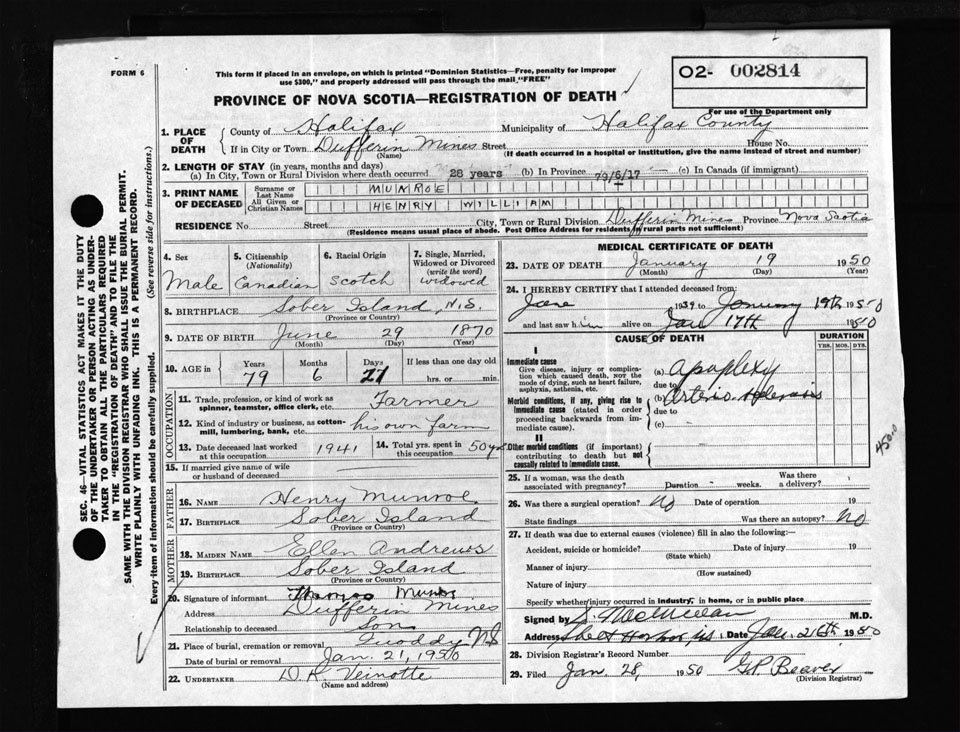 FORM 6
This form if placed in an envelope, on which is printed "Dominion Statistics—Free, penalty for improper
use $300," and properly addressed will pass through the mail "FREE"
O2- 002814
For use of the Department only
PROVINCE OF NOVA SCOTIA—REGISTRATION OF DEATH
1. PLACE OF DEATH
County of Halifax Municipality of Halifax County
If in City or Town Dufferin Mines Street House No.
(Name) (If death occurred in a hospital or institution, give the name instead of street and number)
2. LENGTH OF STAY (in years, months and days)
(a) In City, Town or Rural Division where death occurred 28 years (b) In Province 79/6/17 (c) In Canada (if immigrant)
3. PRINT NAME OF DECEASED
Surname or Last Name MUNROE
All Given or Christian Names HENRY WILLIAM
RESIDENCE No. Street City, Town or Rural Division Dufferin Mines Province Nova Scotia
(Residence means usual place of abode. Post Office Address for residents in rural parts not sufficient)
4. Sex Male
5. Citizenship (Nationality) Canadian
6. Racial Origin Scotch
7. Single, Married, Widowed or Divorced (write the word) widowed
8. BIRTHPLACE Sober Island, N.S.
(Province or Country)
9. DATE OF BIRTH June 29 1870
(Month) (Day) (Year)
10. AGE in Years 79 Months 6 Days 21 If less than one day old hrs. or min.
OCCUPATION
11. Trade, profession, or kind of work as spinner, teamster, office clerk, etc. Farmer
12. Kind of industry or business, as cotton-mill, lumbering, bank, etc. his own farm
13. Date deceased last worked at this occupation 1941
14. Total yrs. spent in this occupation 50 yrs
15. If married give name of wife or husband of deceased
FATHER
16. NAME Henry Munroe
17. BIRTHPLACE Sober Island
(Province or Country)
MOTHER
18. MAIDEN NAME Ellen Andrews
19. BIRTHPLACE Sober Island
(Province or Country)
20. Signature of informant Thomas Munro
Address Dufferin Mines
Relationship to deceased Son
21. Place of burial, cremation or removal Quoddy NS
Date of burial or removal Jan. 21, 1950
22. UNDERTAKER D. R. Veinotte
(Name and address)
MEDICAL CERTIFICATE OF DEATH
23. DATE OF DEATH January 19 1950
(Month) (Day) (Year)
24. I HEREBY CERTIFY that I attended deceased from:
June 1939 to January 19th 1950
and last saw him alive on Jan 17th 1950
CAUSE OF DEATH
DURATION
YRS. MOS. DYS.
I
Immediate cause
Give disease, injury or complication which caused death, NOT the mode of dying, such as heart failure, asphyxia, asthenia, etc.
(a) Apoplexy
due to
Morbid conditions, if any, giving rise to immediate cause (stated in order proceeding backwards from immediate cause).
(b) Arterio sclerosis
due to
(c)
II
Other morbid conditions (if important) contributing to death but not causally related to immediate cause.
25. If a woman, was the death associated with pregnancy? Duration weeks. Was there a delivery?
26. Was there a surgical operation? No Date of operation 19
State findings Was there an autopsy? No
27. If death was due to external causes (violence) fill in also the following:—
Accident, suicide or homicide? Date of injury 19
(State which)
Manner of injury
(How sustained)
Nature of injury
Specify whether injury occurred in industry, in home, or in public place
Signed by McMillan M.D.
Address Sheet Harbor Date Jan. 26th 1950
28. Division Registrar's Record Number
29. Filed Jan. 28, 1950 G.P. Beaver
(Division Registrar)
SEC. 46—VITAL STATISTICS ACT MAKES IT THE DUTY
OF THE UNDERTAKER OR PERSON ACTING AS UNDERTAKER
TO OBTAIN ALL THE PARTICULARS REQUIRED
IN THE "REGISTRATION OF DEATH" AND TO FILE THE
SAME WITH THE DIVISION REGISTRAR WHO SHALL ISSUE THE BURIAL PERMIT.
WRITE PLAINLY WITH UNFADING INK. THIS IS A PERMANENT RECORD.
Every item of information should be carefully supplied. (See reverse side for instructions.)